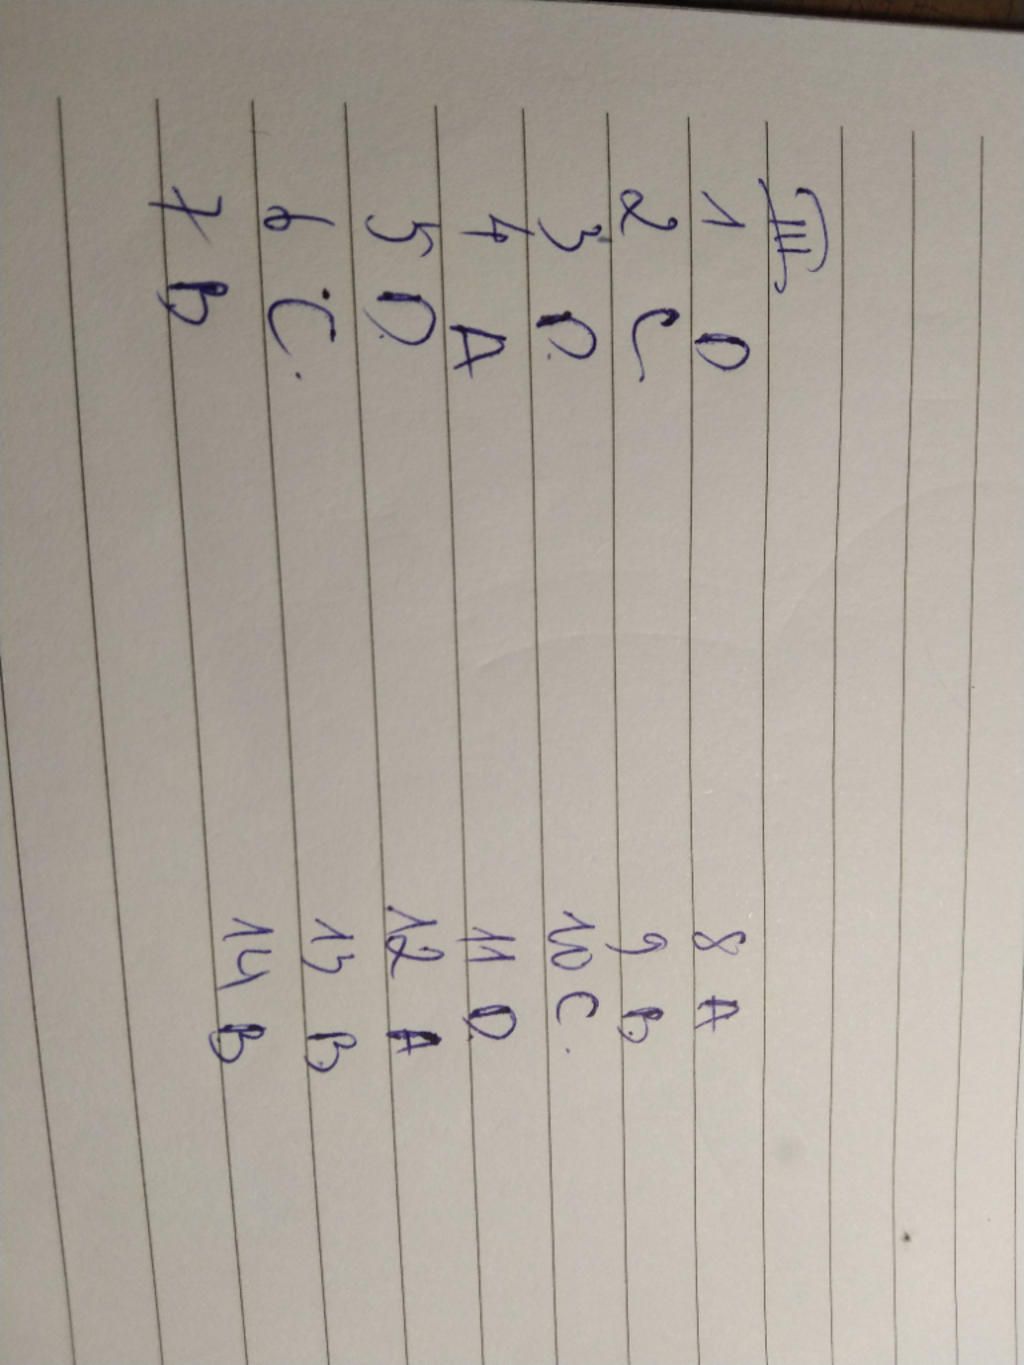 III
1 D
2 C
3 D.
4 A
5 D.
6 C.
7 B
8 A
9 B.
10 C.
11 D.
12 A
13 B.
14 B